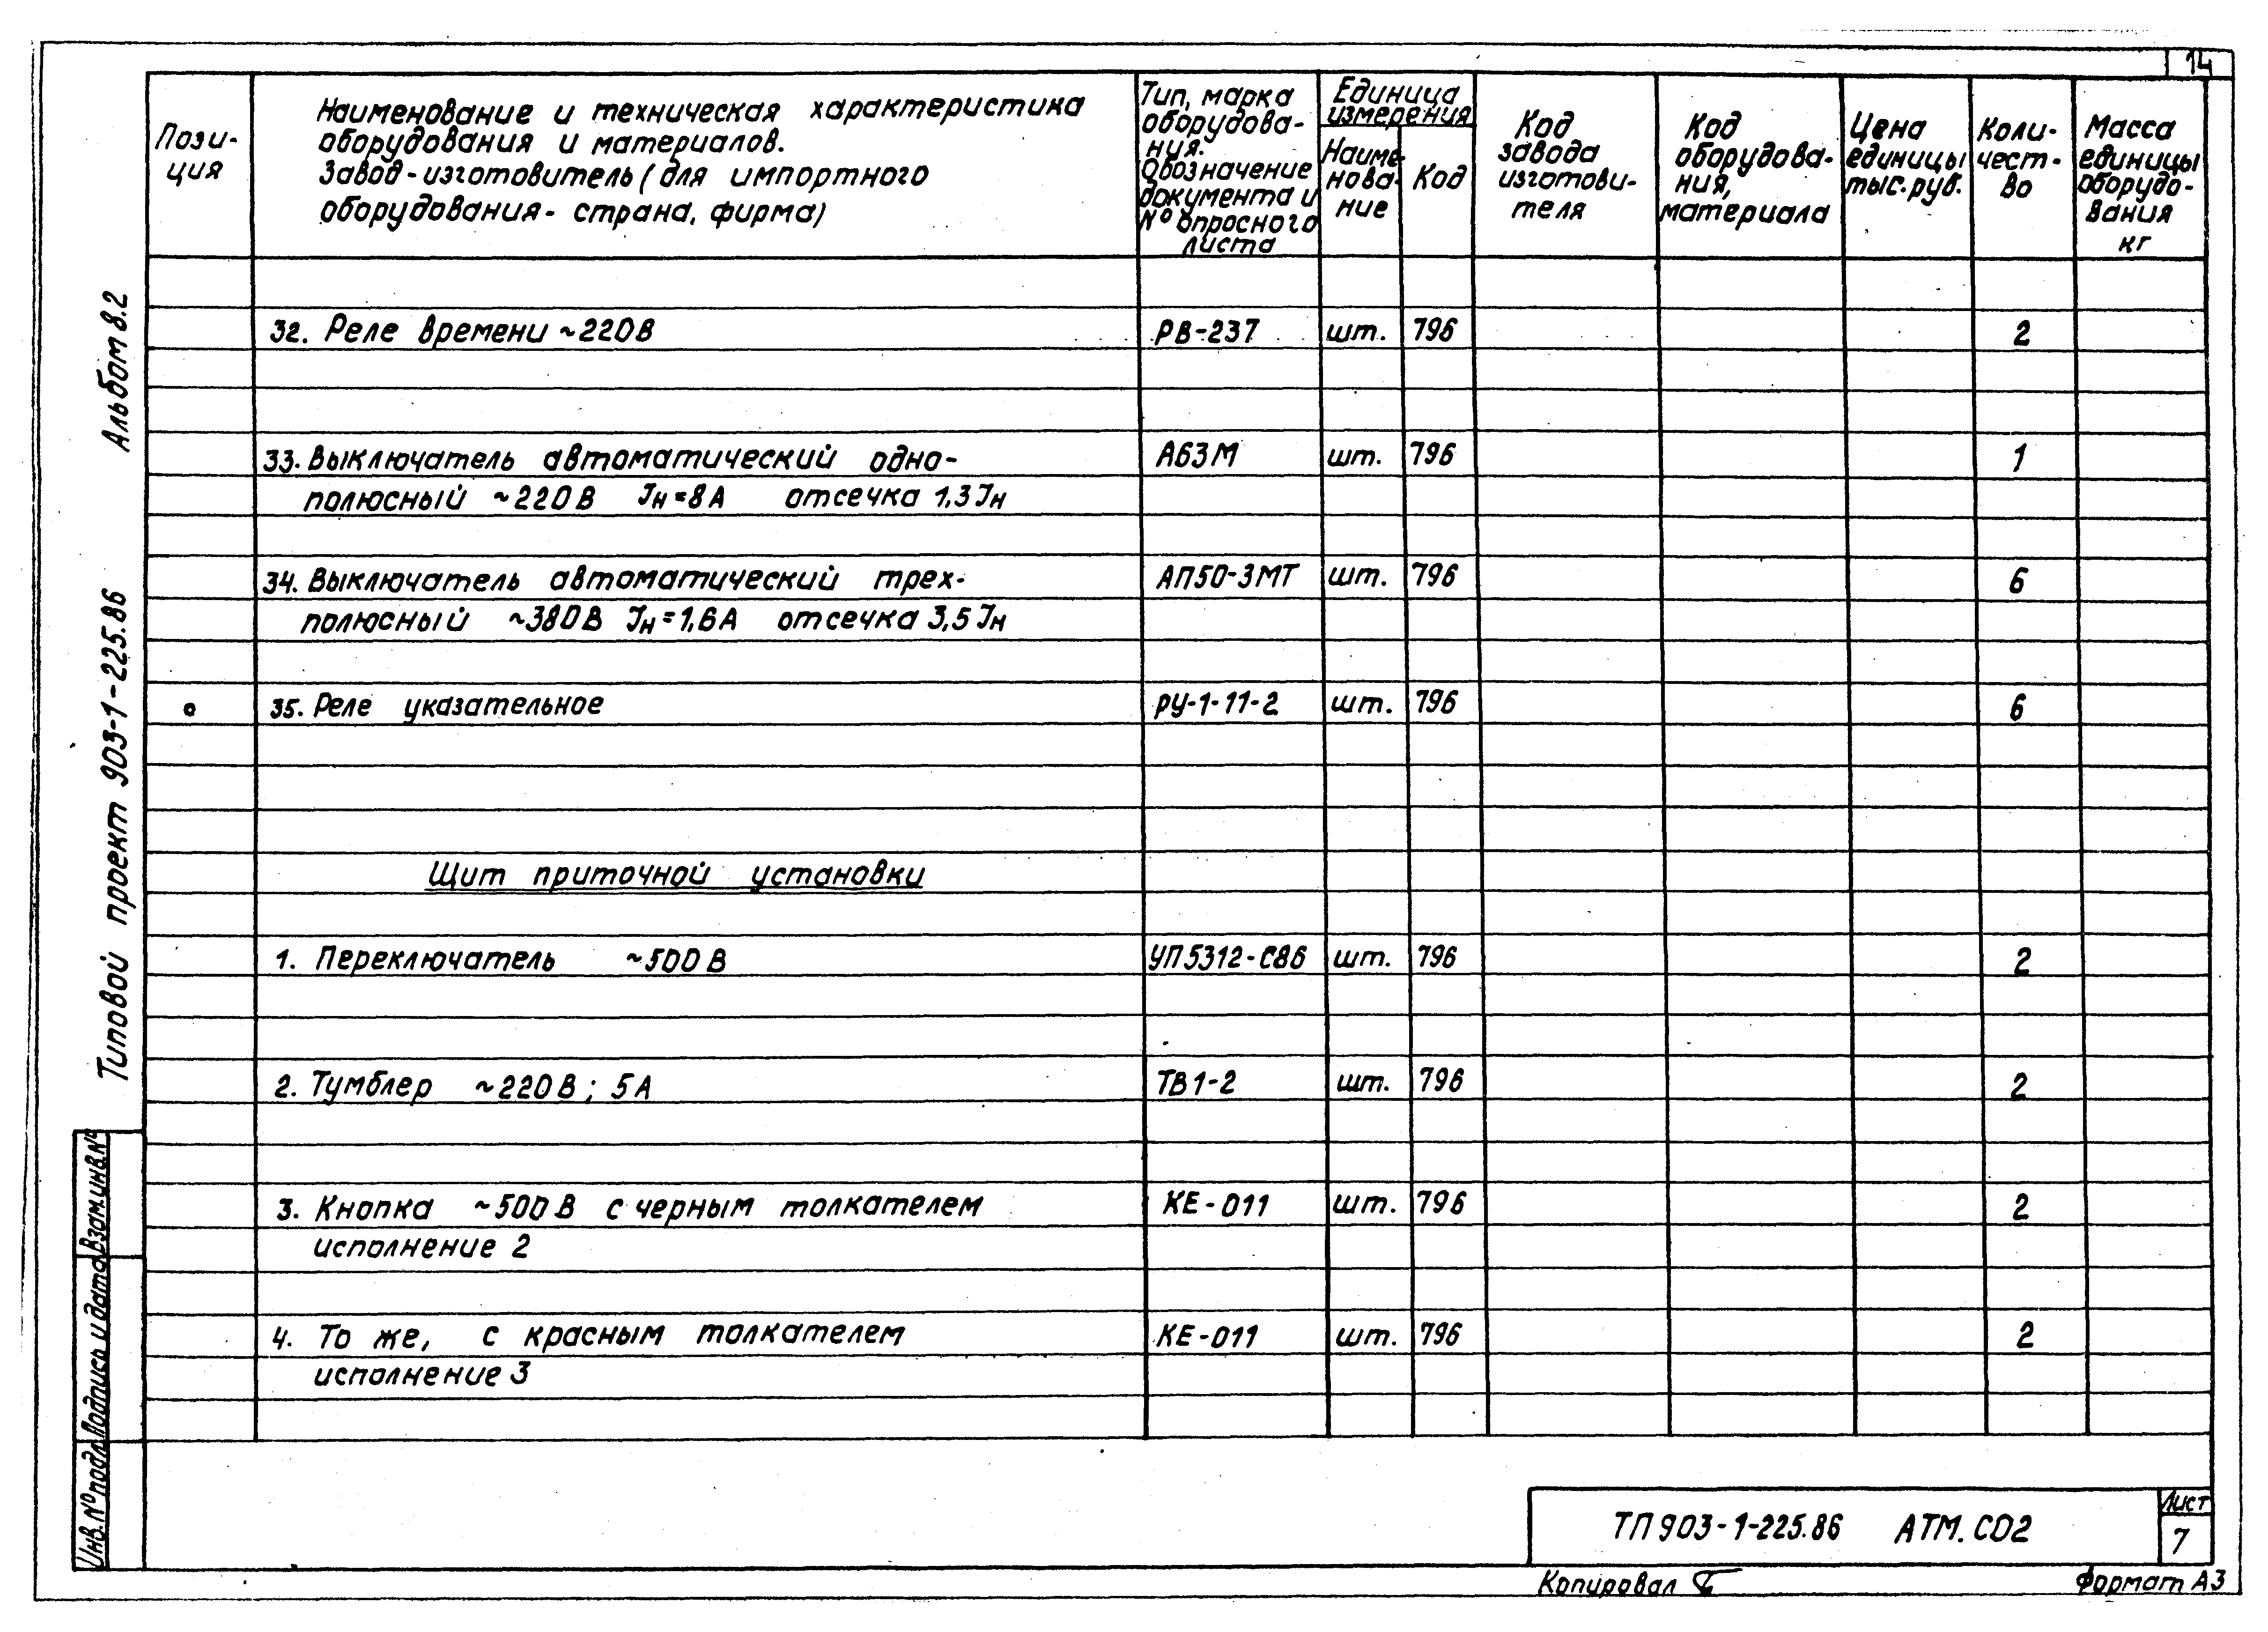 14
Пози-
ция
Наименование и техническая характеристика
оборудования и материалов.
Завод-изготовитель (для импортного
оборудования- страна, фирма)
Тип, марка
оборудова-
ния.
Обозначение
документа и
№ опросного
листа
Единица
измерения
Наиме-
нова-
ние
Код
Код
завода
изготови-
теля
Код
оборудова-
ния,
материала
Цена
единицы
тыс.руб.
Коли-
чест-
во
Масса
единицы
оборудо-
вания
кг
32. Реле времени ~220В РВ-237 шт. 796 2
33. Выключатель автоматический одно- А63М шт. 796 1
полюсный ~220В Iн=8А отсечка 1,3Iн
34. Выключатель автоматический трех- АП50-3МТ шт. 796 6
полюсный ~380В Iн=1,6А отсечка 3,5Iн
35. Реле указательное РУ-1-11-2 шт. 796 6
Щит приточной установки
1. Переключатель ~500В УП5312-С86 шт. 796 2
2. Тумблер ~220В; 5А ТВ1-2 шт. 796 2
3. Кнопка ~500В с черным толкателем КЕ-011 шт. 796 2
исполнение 2
4. То же, с красным толкателем КЕ-011 шт. 796 2
исполнение 3
Альбом 8.2
Типовой проект 903-1-225.86
Взам.инв.№
Подпись и дата
Инв.№подл.
ТП903-1-225.86 АТМ.СО2
Лист
7
Копировал
Формат А3